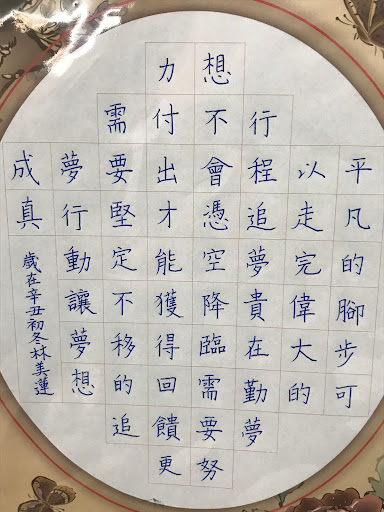 平凡的腳步可
以走完偉大的
行程追夢貴在勤夢
想不會憑空降臨需要努
力付出才能獲得回饋更
需要堅定不移的追
夢行動讓夢想
成真
歲在辛丑初冬林美蓮